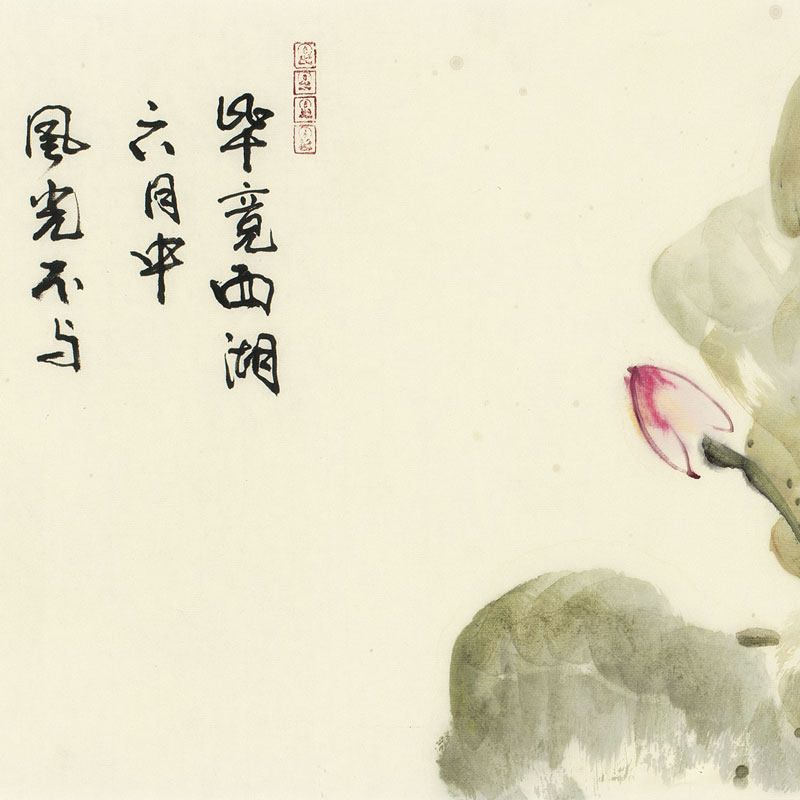 毕竟西湖
六月中
风光不与